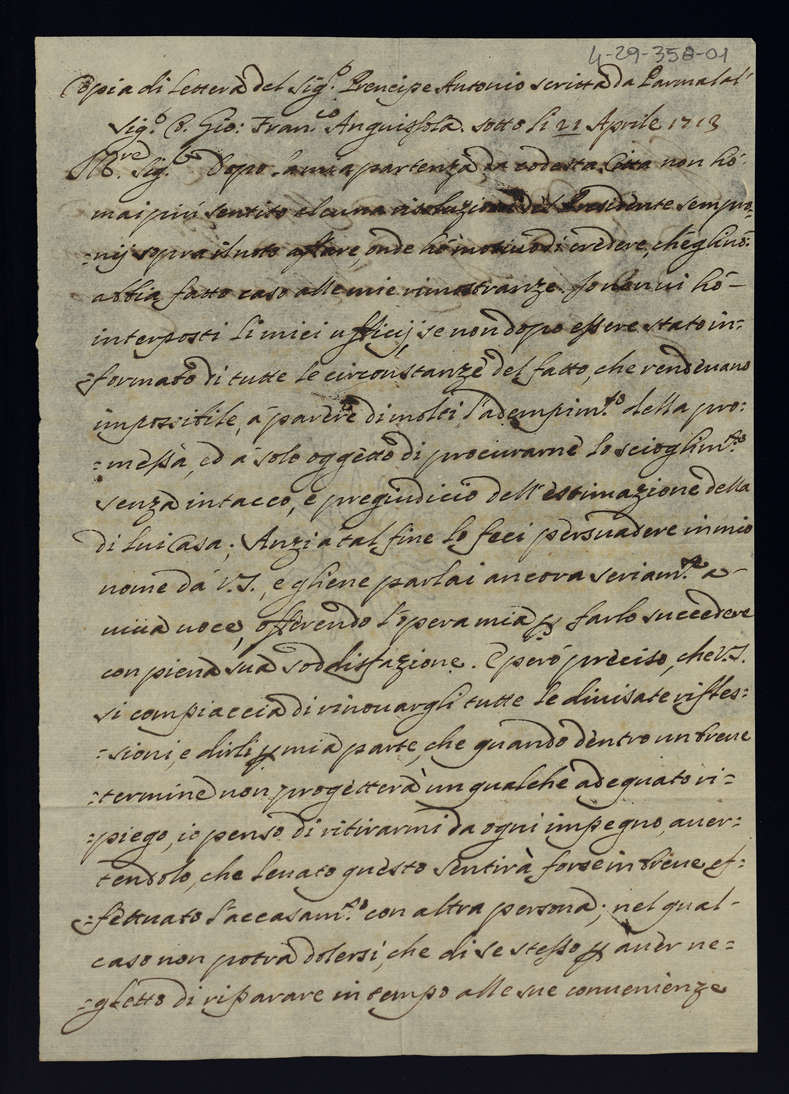 4-29-358-01
Copia di Lettera del Sig.r Prencipe Antonio scritta da Parma al
Sig.r C. Gio: Fran.co Anguissola. sotto li 21 Aprile 1713
Sig.r Dopo la mia partenza da codesta Città non hò
mai più sentito alcuna risoluzione del Presidente sempro=
=nij sopra il noto affare, onde hò motivo di credere, ch'egli nō
abbia fatto caso alle mie rimostranze. Jo non vi hò
interposti li miei ufficij, se non dopo essere stato in=
=formato di tutte le circonstanze del fatto, che rendevano
impossibile, à parere di molti l'adempim.to della pro=
=messa, ed à solo oggetto di procurarne lo scioglim.to
senza intacco, e pregiudicio dell'estimazione della
di lui Casa; Anzi à tal fine lo feci persuadere in mio
nome da V.S., e gliene parlai ancora seriam.te a
viva voce, offerendo l'opera mia p farlo succedere
con piena sua soddisfazione. È però preciso, che V.S.
si compiaccia di rinovargli tutte le divisate rifles=
=sioni, e dirli p mia parte, che quando dentro un breve
=termine non progetterà un qualche adequato ri=
=piego, io penso di ritirarmi da ogni impegno, aver=
tendolo, che levato questo sentirà forse in breve ef=
=fettuato l'accasam.to con altra persona; nel qual
caso non potrà dolersi, che di se stesso p aver ne=
=gletto di riparare in tempo alle sue convenienze